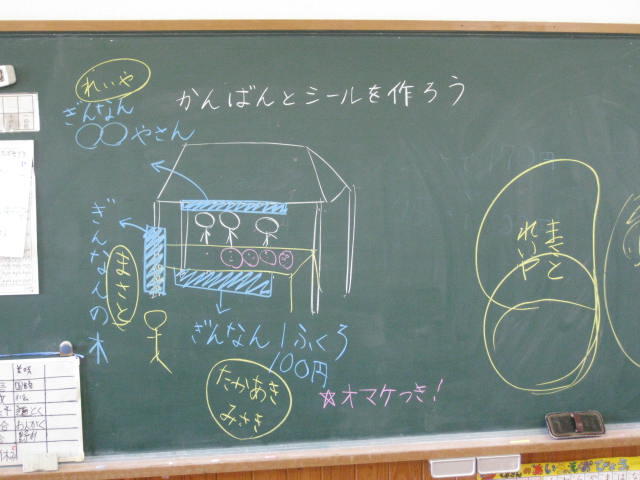 れいや
かんばんとシールを作ろう
ぎんなん
〇〇やさん
ぎんなんの木
まさと
ぎんなん1ふくろ
100円
たかあき
みさき
☆オマケつき!
まさと
れいや